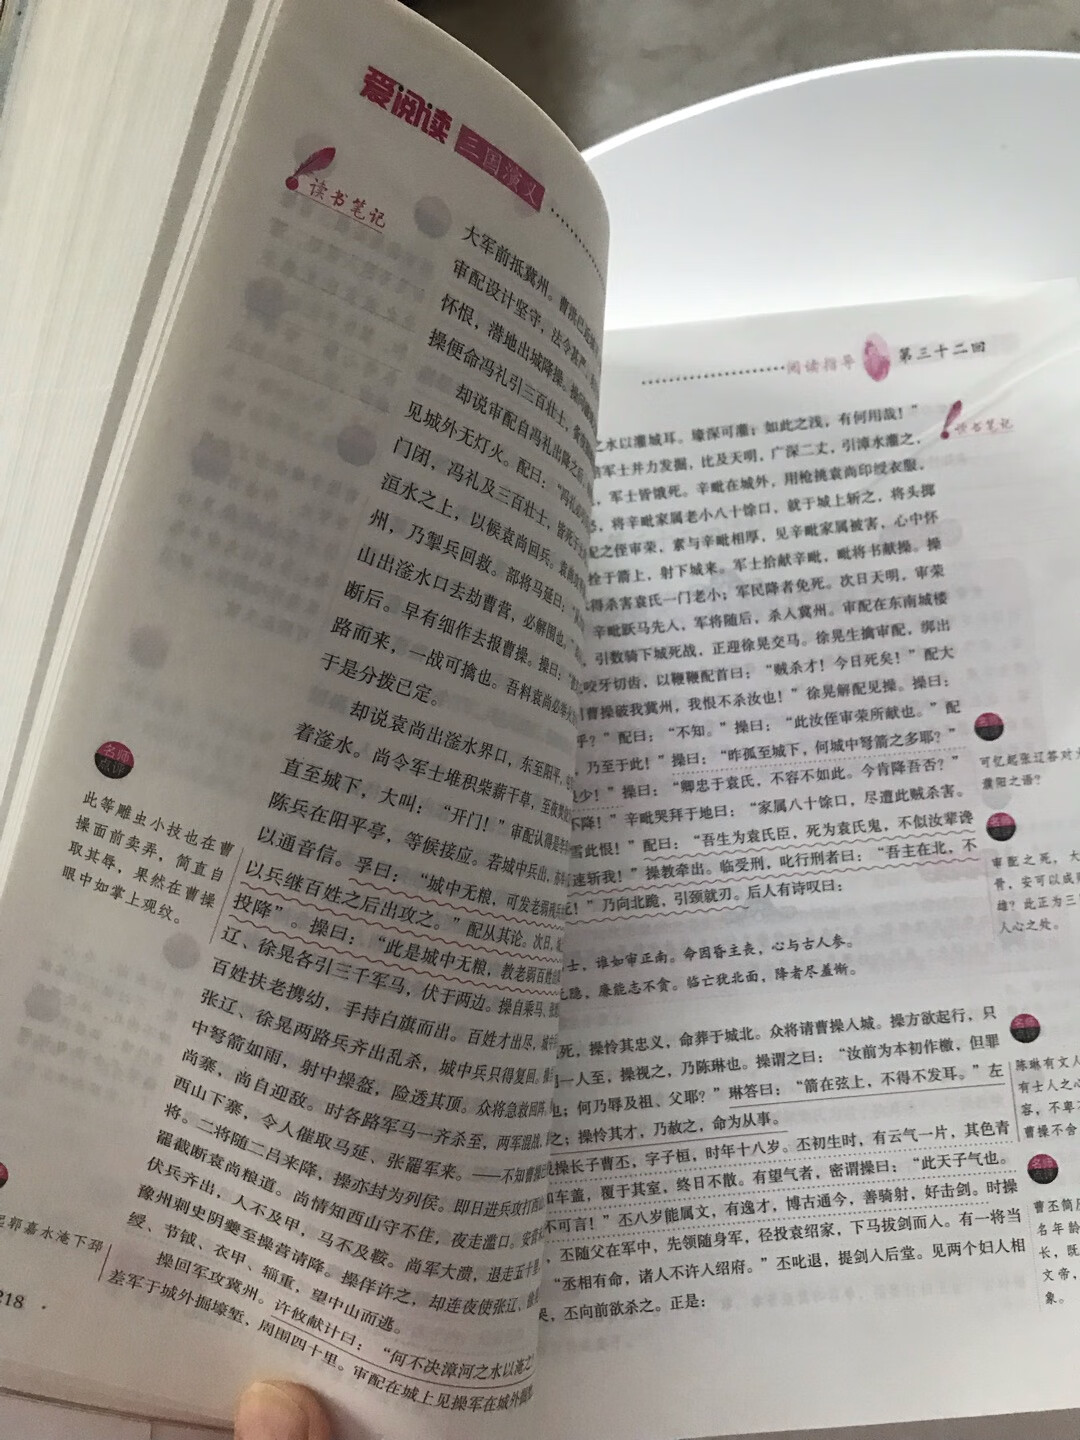 爱阅读 三国演义
读书笔记
大军前抵冀州。曹洪已
审配设计坚守，法令甚严，
怀恨，潜地出城降操。操
操便命冯礼引三百壮士，
却说审配自冯礼出降之后，
见城外无灯火。配曰：“冯礼
门闭，冯礼及三百壮士，皆死于
洹水之上，以候袁尚回兵。袁尚
州，乃掣兵回救。部将马延曰：
山出滏水口去劫曹营，必解围也。”
断后。早有细作去报曹操。操曰：
路而来，一战可擒也。吾料袁尚必举火
于是分拨已定。
却说袁尚出滏水界口，东至阳平，
着滏水。尚令军士堆积柴薪干草，至夜
直至城下，大叫：“开门！”审配认得是李
陈兵在阳平亭，等候接应。若城中兵出，
以通音信。孚曰：“城中无粮，可发老弱残
以兵继百姓之后出攻之。”配从其论。次日，
投降”。操曰：“此是城中无粮，教老弱百姓
辽、徐晃各引三千军马，伏于两边。操自乘马、
百姓扶老携幼，手持白旗而出。百姓才出尽，城中
张辽、徐晃两路兵齐出乱杀，城中兵只得复回。
中弩箭如雨，射中操盔，险透其顶。众将急救回阵。
尚寨，尚自迎敌。时各路军马一齐杀至，两军混战，
西山下寨，令人催取马延、张𫖮军来。——不知曹操
将。二将随二吕来降，操亦封为列侯。即日进兵攻打西山
罷截断袁尚粮道。尚情知西山守不住，夜走滥口。安营
伏兵齐出，人不及甲，马不及鞍。尚军大溃，退走五十里，
豫州刺史阴夔至操营请降。操佯许之，却连夜使张辽、徐
绶、节钺、衣甲、辎重，望中山而逃。
操回军攻冀州。许攸献计曰：“何不决漳河之水以淹之
差军于城外掘壕堑，周围四十里。审配在城上见操军在城外掘
名师点评
此等雕虫小技也在曹
操面前卖弄，简直自
取其辱，果然在曹操
眼中如掌上观纹。
郭嘉水淹下邳
218
阅读指导 第三十二回
读书笔记
之水以灌城耳。壕深可灌；如此之浅，有何用哉！”
军士并力发掘，比及天明，广深二丈，引漳水灌之，
，军士皆饿死。辛毗在城外，用枪挑袁尚印绶衣服，
，将辛毗家属老小八十馀口，就于城上斩之，将头掷
配之侄审荣，素与辛毗相厚，见辛毗家属被害，心中怀
拴于箭上，射下城来。军士拾献辛毗，毗将书献操。操
得杀害袁氏一门老小；军民降者免死。次日天明，审荣
辛毗跃马先入，军将随后，杀入冀州。审配在东南城楼
，引数骑下城死战，正迎徐晃交马。徐晃生擒审配，绑出
咬牙切齿，以鞭鞭配首曰：“贼杀才！今日死矣！”配大
引曹操破我冀州，我恨不杀汝也！”徐晃解配见操。操曰：
乎？”配曰：“不知。”操曰：“此汝侄审荣所献也。”配
，乃至于此！”操曰：“昨孤至城下，何城中弩箭之多耶？”
少！”操曰：“卿忠于袁氏，不容不如此。今肯降吾否？”
不降！”辛毗哭拜于地曰：“家属八十馀口，尽遭此贼杀害。
雪此恨！”配曰：“吾生为袁氏臣，死为袁氏鬼，不似汝辈谗
速斩我！”操教牵出。临受刑，叱行刑者曰：“吾主在北，不
！”乃向北跪，引颈就刃。后人有诗叹曰：
士，谁如审正南。命因昏主丧，心与古人参。
隐，廉能志不贪。临亡犹北面，降者尽羞惭。
死，操怜其忠义，命葬于城北。众将请曹操入城。操方欲起行，只
一人至，操视之，乃陈琳也。操谓之曰：“汝前为本初作檄，但罪
；何乃辱及祖、父耶？”琳答曰：“箭在弦上，不得不发耳。”左
之；操怜其才，乃赦之，命为从事。
操长子曹丕，字子桓，时年十八岁。丕初生时，有云气一片，其色青
如车盖，覆于其室，终日不散。有望气者，密谓操曰：“此天子气也。
不可言！”丕八岁能属文，有逸才，博古通今，善骑射，好击剑。时操
，丕随父在军中，先领随身军，径投袁绍家，下马拔剑而入。有一将当
“丞相有命，诸人不许入绍府。”丕叱退，提剑入后堂。见两个妇人相
哭，丕向前欲杀之。正是：
名师
可忆起张辽答对
濮阳之语？
名师
审配之死，大
骨，安可以成
雄？此正为三
人心之处。
名师
陈琳有文人
有士人之心
容，不卑不
曹操不舍
名师
曹丕简历
名年龄
长，既
文帝，
象。